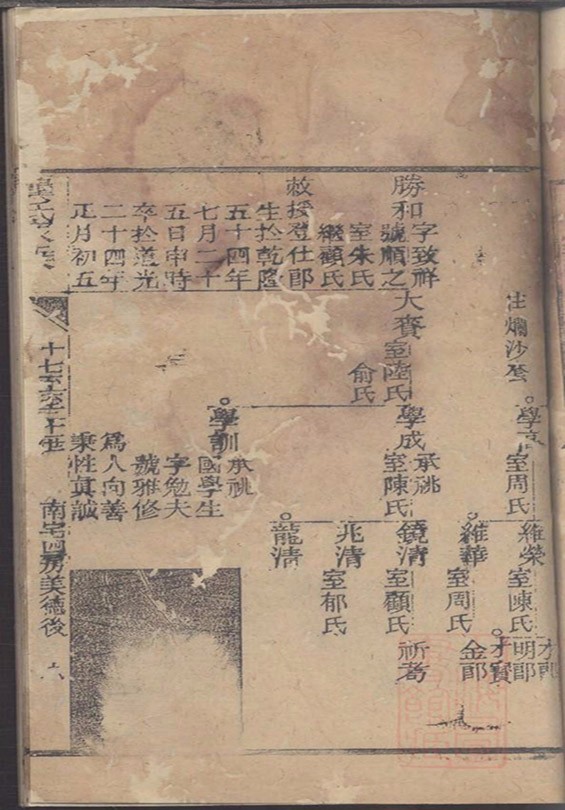 住爛沙奎
學
室周氏
維榮
室陳氏
明郎
才寶
維華
室周氏
金郎
勝和
字致祥
號順之
室朱氏
繼顧氏
敕授登仕郎
生於乾隆
五十四年
七月二十
五日申時
卒於道光
二十四年
正月初五
大賚
室陸氏
俞氏
學成
承祧
室陳氏
鏡清
室顧氏
祈考
兆清
室郁氏
龍清
學訓
承祧
國學生
字勉夫
號雅修
為人向善
秉性真誠
十七
南宅四房美德後
六